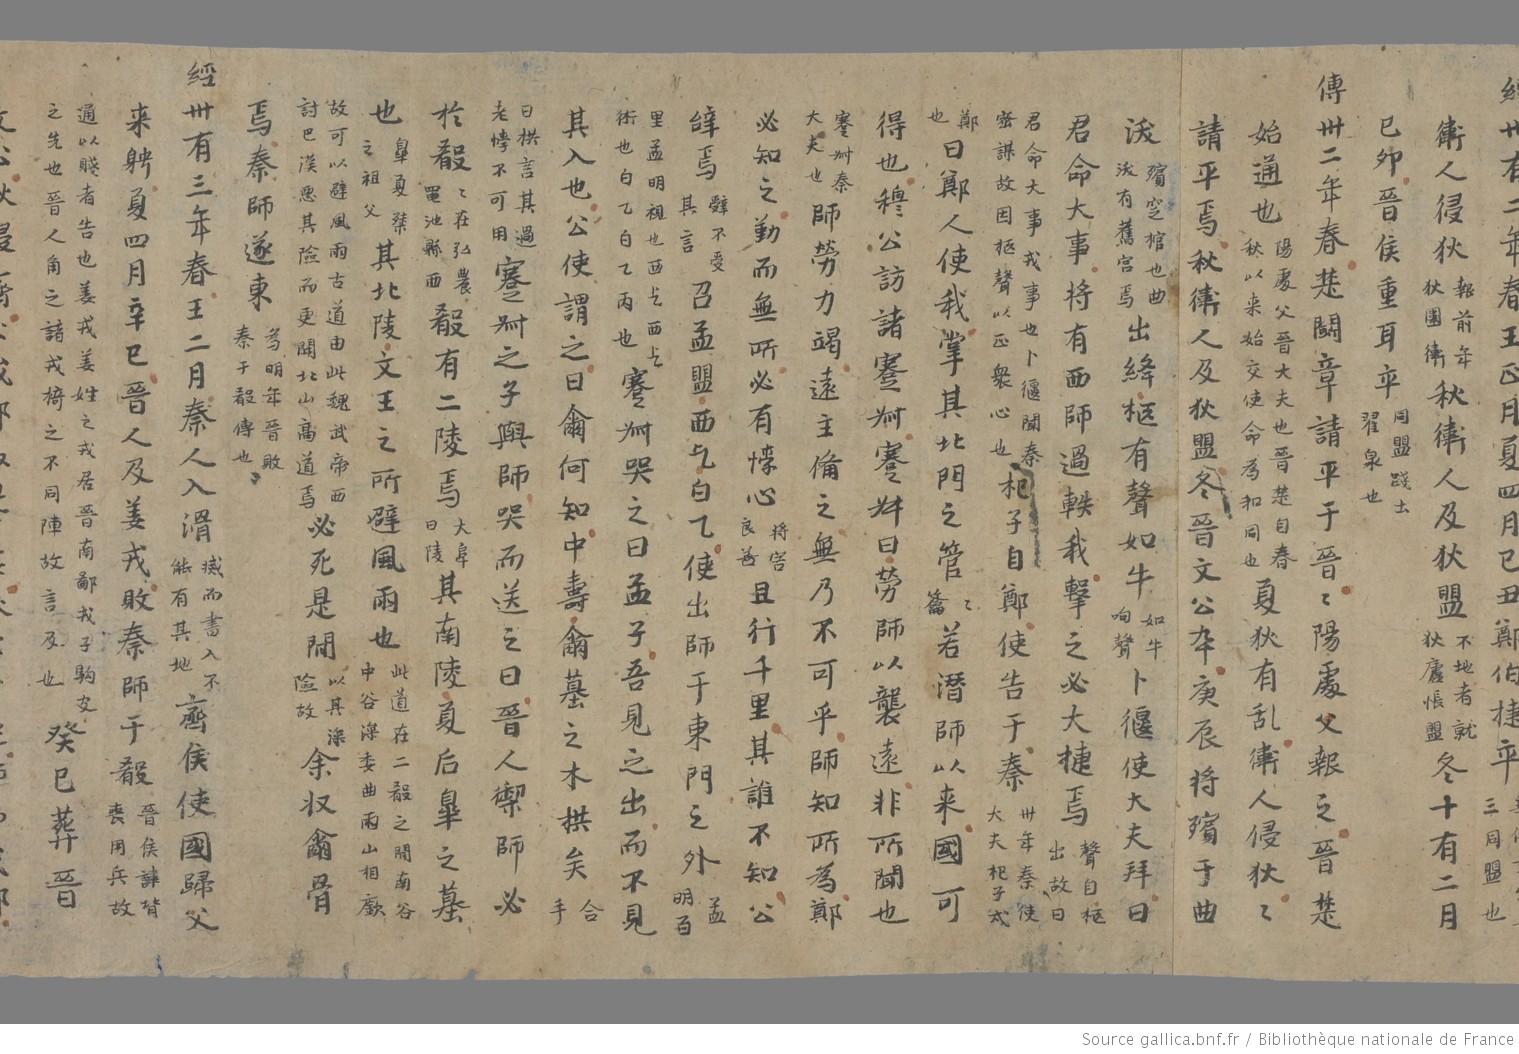 經卅有二年春王正月夏四月己丑鄭伯捷卒
三同盟也
衛人侵狄報前年狄圍衛秋衛人及狄盟不地者就狄廬帳盟冬十有二月
已卯晉侯重耳卒同盟踐土翟泉也
傳卅二年春楚鬪章請平于晉〻陽處父報之晉楚
始通也陽處父晉大夫也晉楚自春秋以来始交使命為和同也夏狄有乱衛人侵狄〻
請平焉秋衛人及狄盟冬晉文公卒庚辰将殯于曲
沃殯窆棺也曲沃有舊宫焉出絳柩有聲如牛如牛呴聲卜偃使大夫拜曰
君命大事将有西師過軼我擊之必大捷焉聲自柩出故曰
君命大事戎事也卜偃聞秦密謀故因柩聲以正衆心也杞子自鄭使告于秦卅年秦使大夫杞子戍
鄭也曰鄭人使我掌其北門之管〻籥若潛師以来國可
得也穆公訪諸蹇叔蹇叔曰勞師以襲遠非所聞也
蹇叔秦大夫也師勞力竭遠主俻之無乃不可乎師知所為鄭
必知之勤而無所必有悖心将害良善且行千里其誰不知公
辝焉辝不受其言召孟盟西乞白乙使出師于東門之外孟明百
里孟明視也西乞西乞術也白乙白乙丙也蹇叔哭之曰孟子吾見之出而不見
其入也公使謂之曰爾何知中壽爾墓之木拱矣合手
曰拱言其過老悖不可用蹇叔之子與師哭而送之曰晉人禦師必
於殽〻在弘農黽池縣西殽有二陵焉大阜曰陵其南陵夏后皐之墓
也皐夏桀之祖父其北陵文王之所辟風雨也此道在二殽之間南谷中谷深委曲兩山相嶔
故可以避風雨古道由此魏武帝西討巴漢惡其險而更開北山高道焉必死是間以其深險故余収爾骨
焉秦師遂東為明年晉敗秦于殽傳也
經卅有三年春王二月秦人入滑滅而書入不能有其地齊侯使國歸父
来聘夏四月辛巳晉人及姜戎敗秦師于殽晉侯諱背喪用兵故
通以賤者告也姜戎姜姓之戎居晉南鄙戎子駒支之先也晉人角之諸戎掎之不同陣故言及也癸巳葬晉